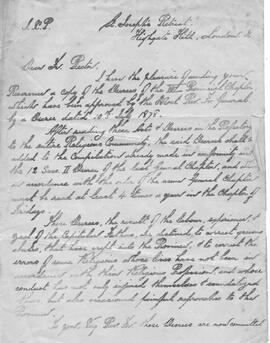 J. X. P.
St. Joseph's Retreat
Highgate Hill, London N.
Dear Fr. Rector,
I have the pleasure of sending your
Reverence a copy of the Decrees of the Provincial Chapter
which have been approved by the Most Rev. Fr. General
by a Decree dated 10th July 1878.
After reading these Acts & Decrees in the Refectory
to the entire Religious Community, the said Decrees should be
added to the Compilation already made in conformity with
the 12 Decree of the last General Chapter, and
in accordance with the order of the same General Chapter
must be read at least 4 times a year in the Chapter of
Fridays.
These Decrees, the result of the labour, experience &
zeal of the Capitular Fathers, are destined, to correct
abuses, that have crept into the Province, & to correct the
errors of some Religious whose lives have not been in
accordance with their Religious Profession and whose
conduct has not only injured themselves & scandalized
others, but also occasioned painful reproaches to this
Province.
To your Very Rev. Fr. these Decrees are now committed